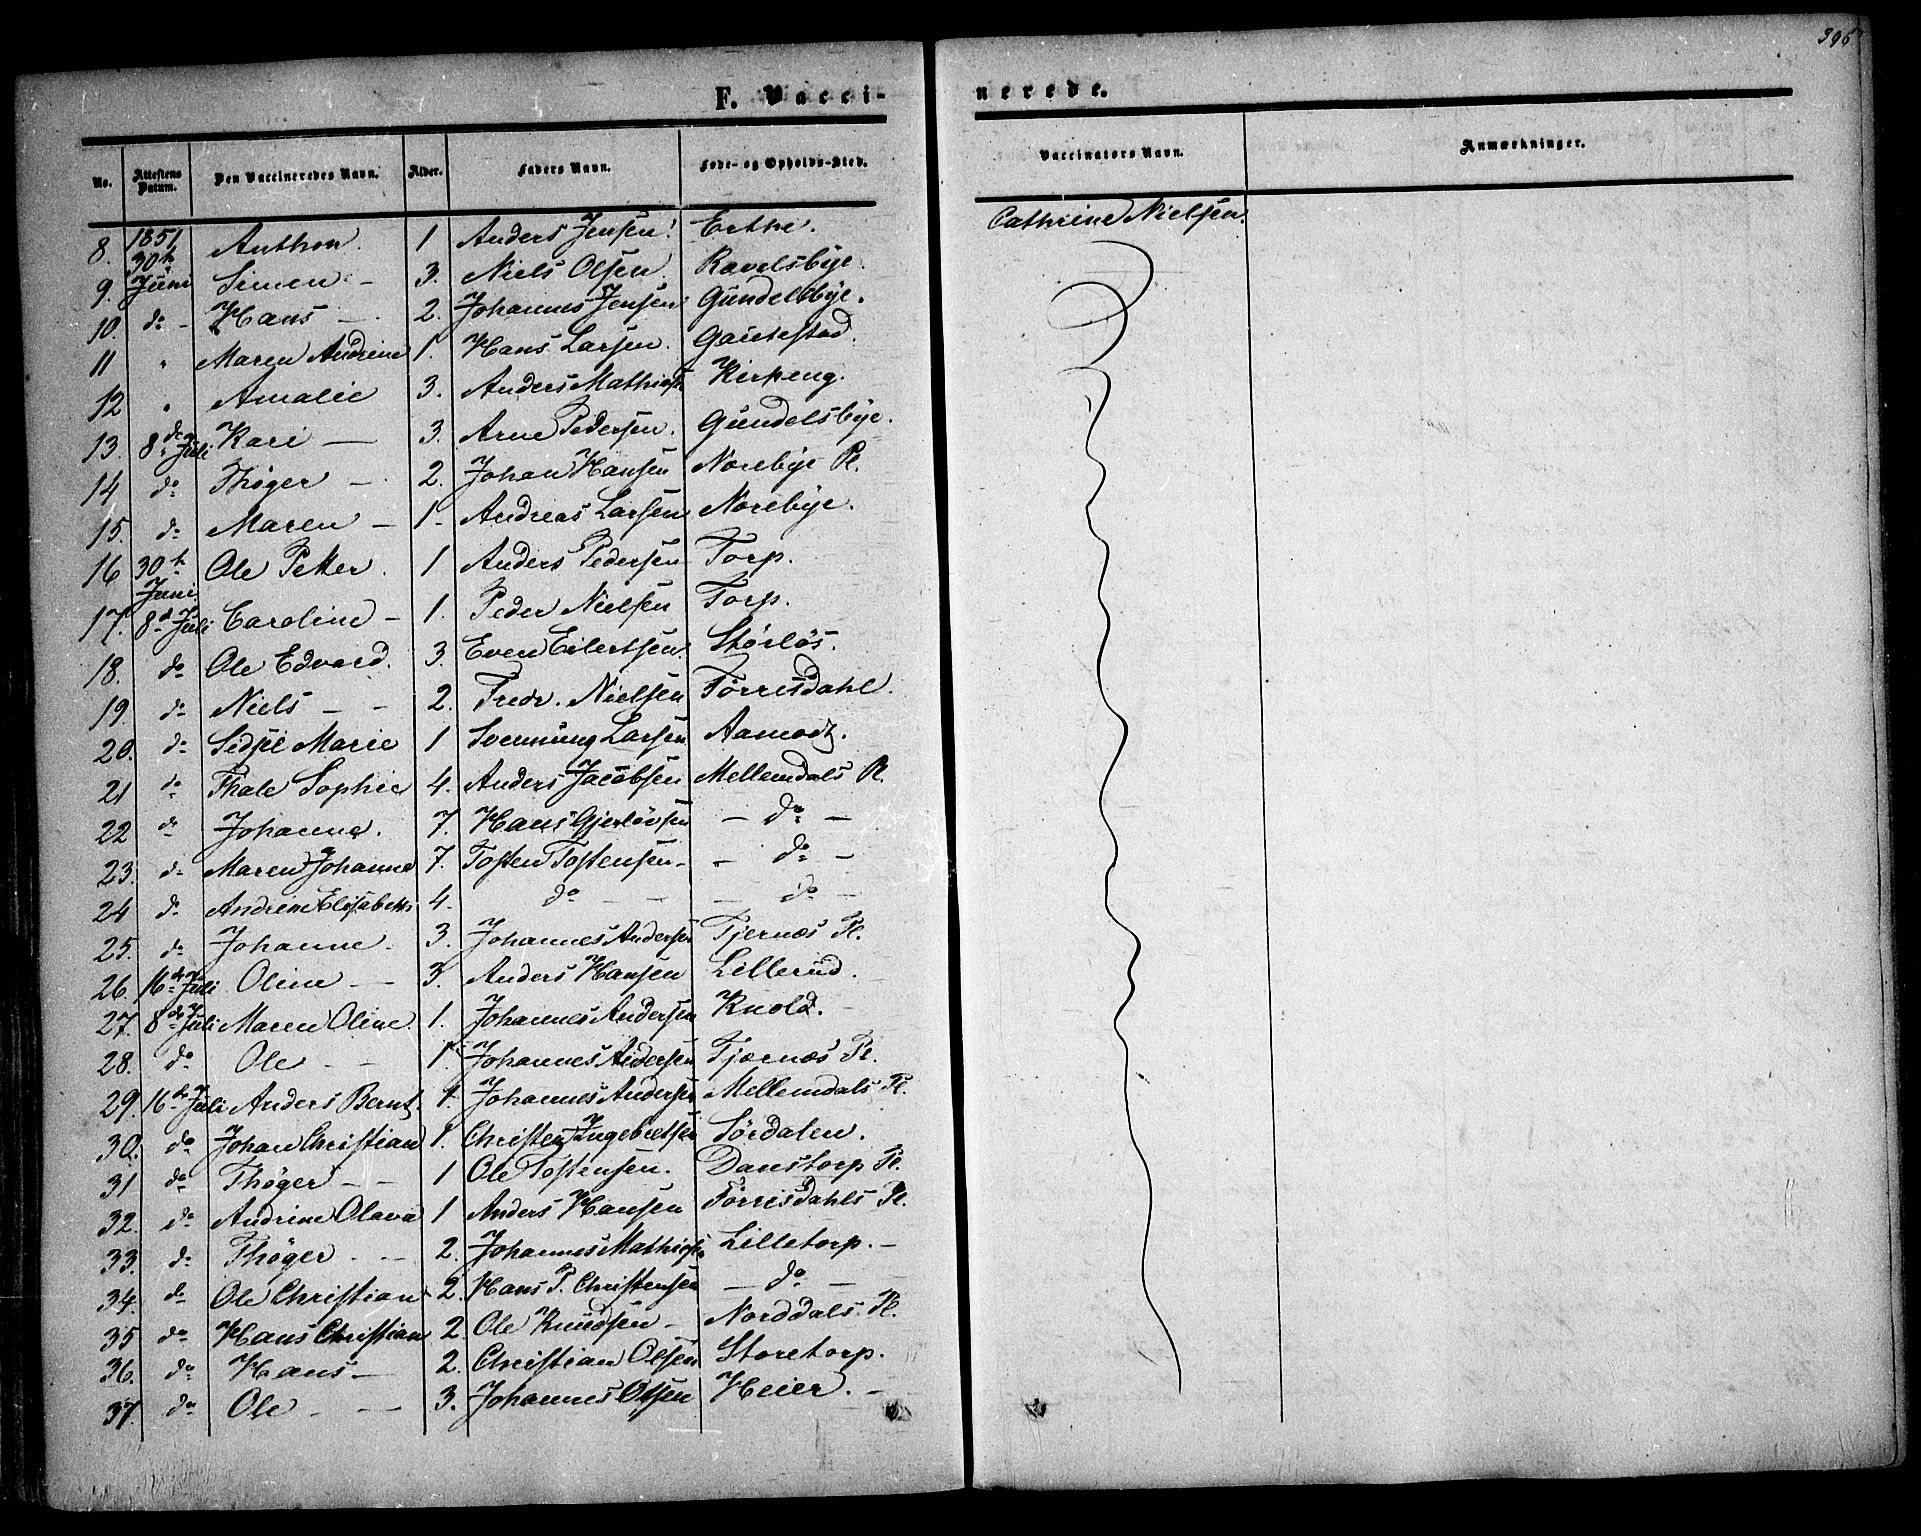 396
F. Vacci-
nerede.
No. Attestens Datum. Den Vaccineredes Navn. Alder. Faders Navn. Føde- og Opholds-Sted. Vaccinators Navn. Anmærkninger.
8. 1851 30th Juni Anthon. 1 Anders Jensen. Erthe. Cathrine Nielsen.
9. Simen - 3. Niels Olsen. Ravelsbye.
10. do - Hans - 2. Johannes Jensen Gundelsbye.
11 " Maren Andrine 1. Hans Larsen. Gautestad.
12 " Amalie 3. Anders Mathies Kirkeng.
13. 8de Juli Kari - 3. Arne Pedersen. Gundelsbye.
14 do Thøger - 2. Johan Hansen Norebye Pl.
15. do Maren - 1. Andreas Larsen Norebye.
16 30th Juni Ole Petter. 1 Anders Pedersen Torp.
17. 8de Juli Caroline - 1. Peder Nielsen Torp.
18. do Ole Edvard. 3. Even Eilertsen. Størløs.
19 do Niels - - 2. Fredr. Nielsen Torrisdahl.
20. do Sidsel Marie 1 Svennung Larsen Aamodt.
21 do Thale Sophie 4. Anders Jacobsen Mellemdals Pl.
22 do Johanne. 7. Hans Gjerløvsen - do -
23. do Maren Johanne 7. Tosten Tostensen - - do -
24 do Andrine Elisabeth 4. do - - - do -
25. do Johanne - 3. Johannes Andersen Tjernæs Pl.
26. 16de Juli Oline - 3. Anders Hansen Lillerud.
27. 8de Juli Maren Oline. 1. Johannes Andersen Knold. -
28. do Ole - - 1. Johannes Andersen Tjærnæs Pl.
29. 16de Juli Anders Bernt. 1. Johannes Andersen Mellemdals Pl.
30. do Johan Christian 1. Christen Ingebretsen Sørdalen.
31 do Thøger - - 1 Ole Tostensen. Danstorp Pl.
32. do Andrine Olava 1 Anders Hansen Torrisdahls Pl.
33. do Thøger - - 2. Johannes Mathiesen Lilletorp. -
34. do Ole Christian 2. Hans P. Christensen - do -
35 do Hans Christian 2. Ole Knudsen - Norddals Pl.
36. do Hans - 2. Christian Olsen Storetorp.
37. do Ole - - 3. Johannes Olsen Heier. -